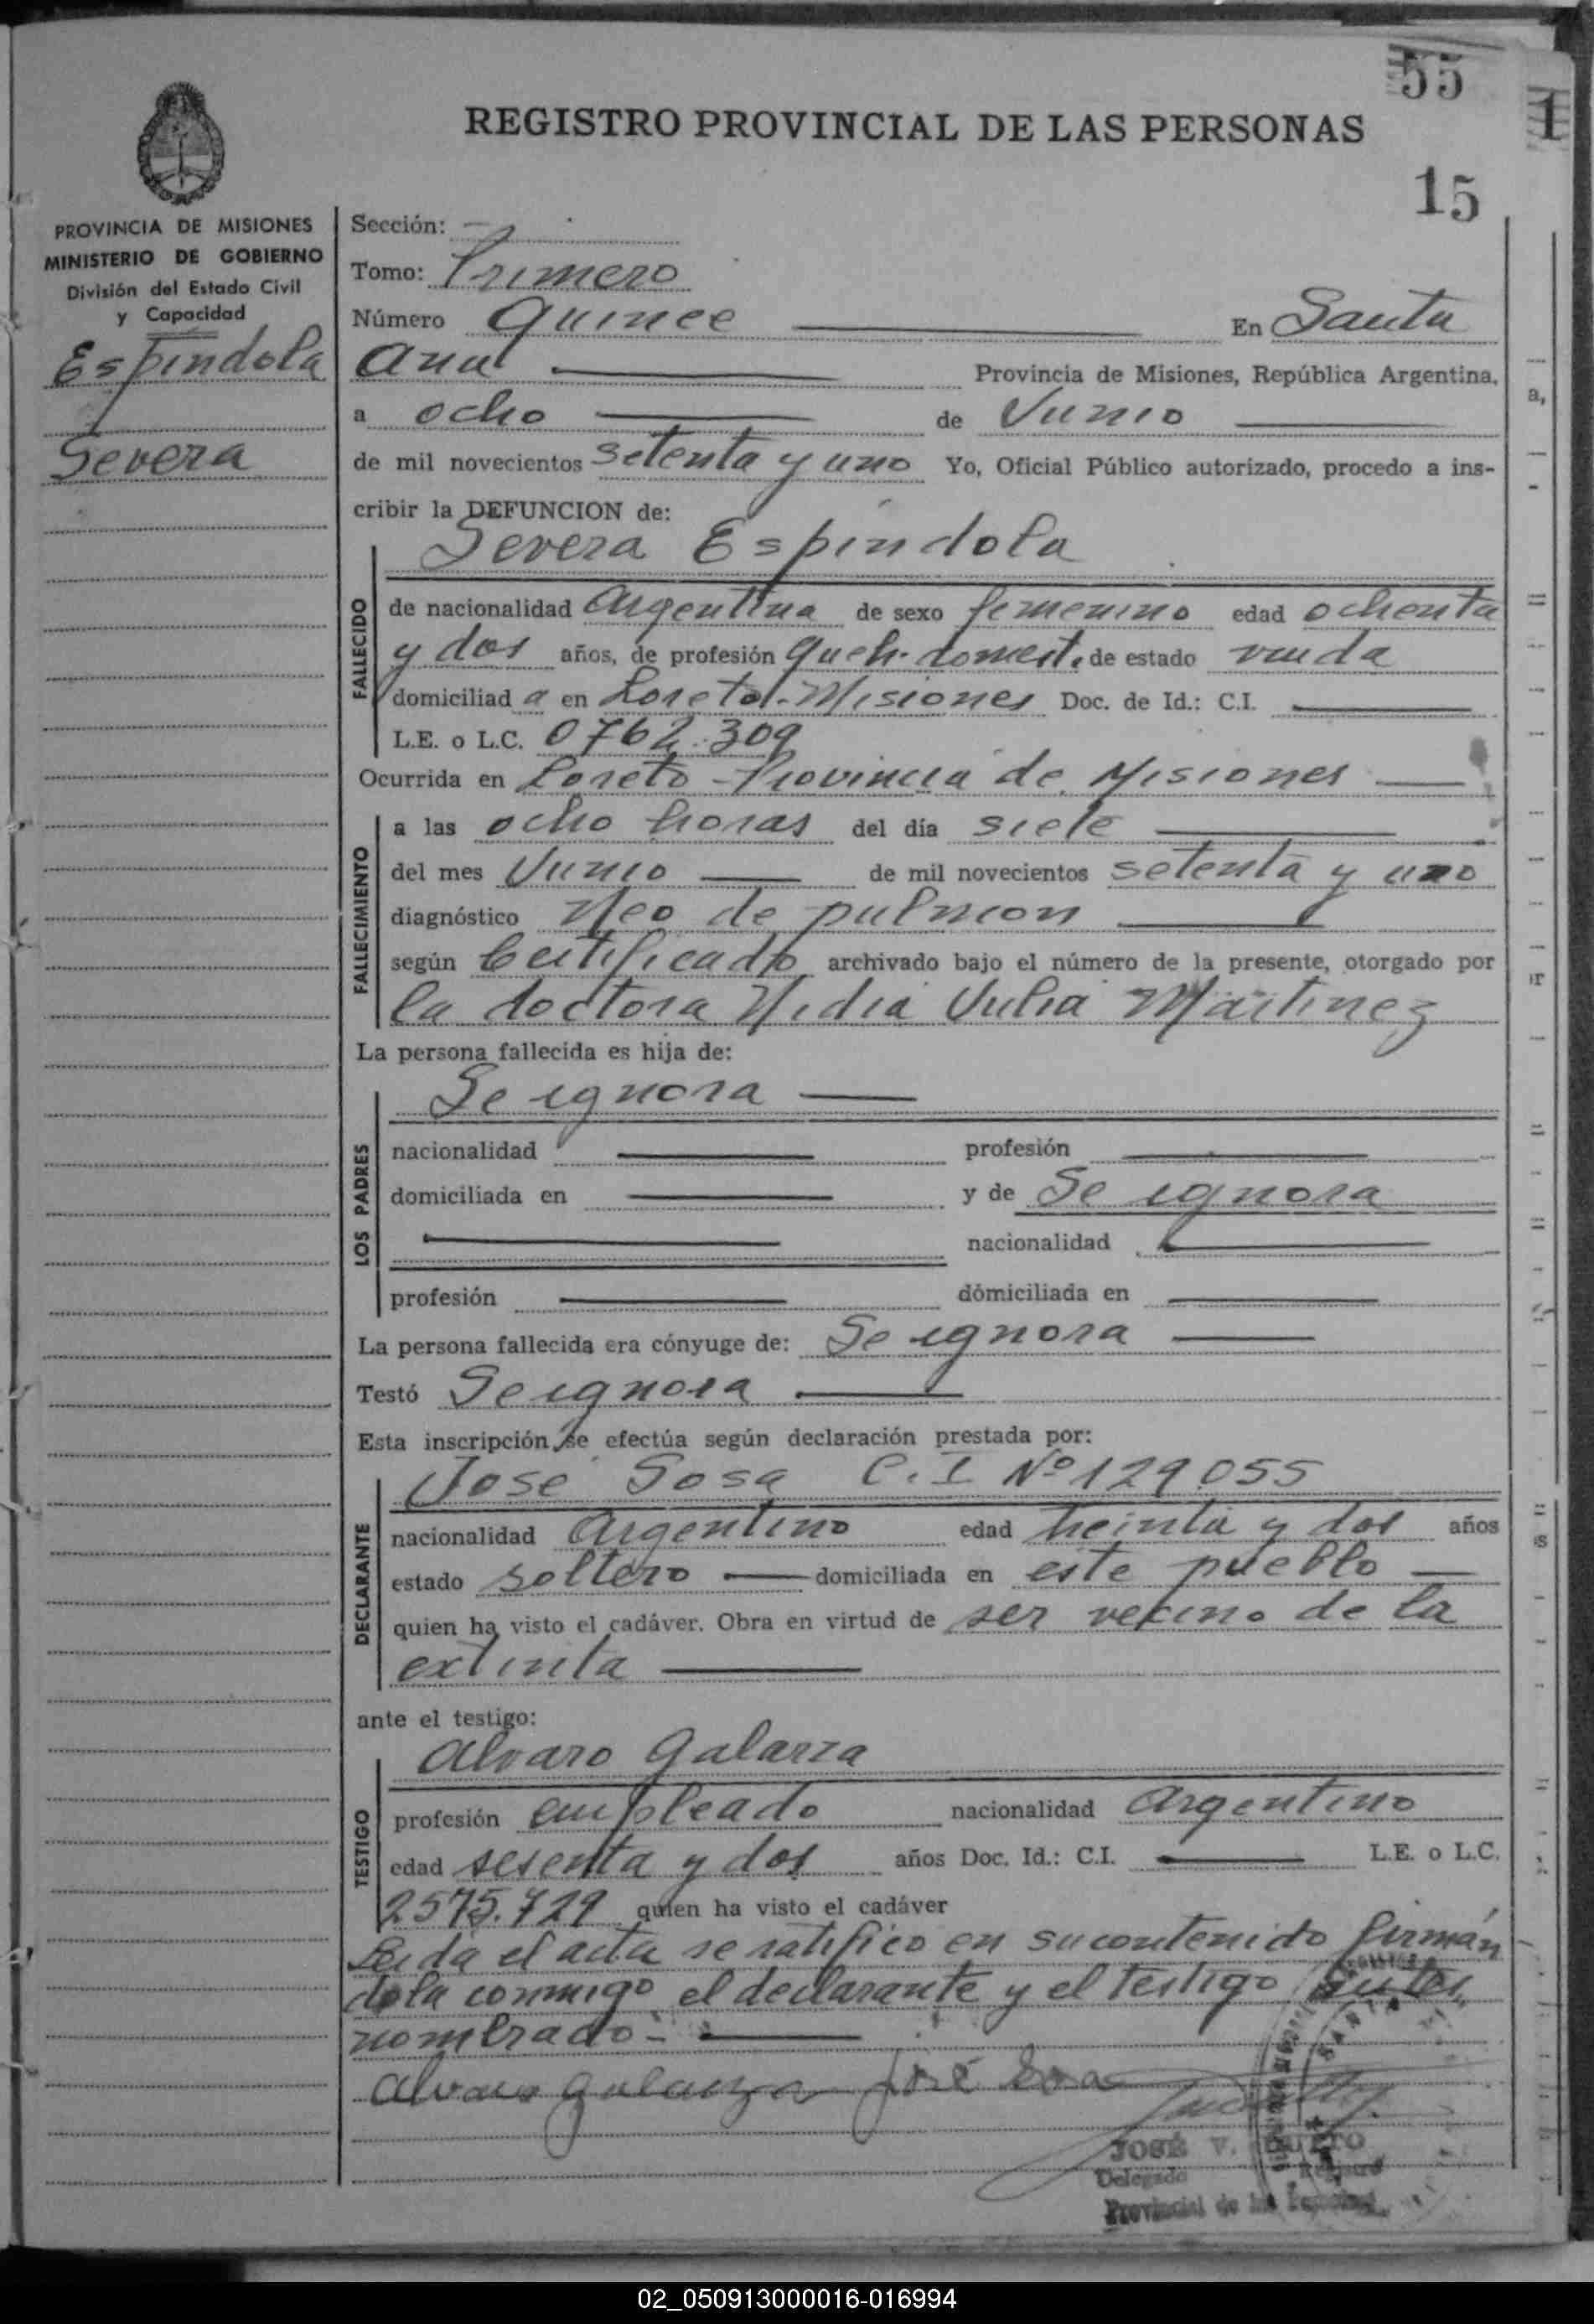 55
1
REGISTRO PROVINCIAL DE LAS PERSONAS
15
PROVINCIA DE MISIONES
MINISTERIO DE GOBIERNO
División del Estado Civil
y Capacidad
Espíndola
Severa
Sección:
Tomo: Primero
Número Quince En Santa
Ana Provincia de Misiones, República Argentina,
a ocho de Junio
de mil novecientos setenta y uno Yo, Oficial Público autorizado, procedo a ins-
cribir la DEFUNCION de:
Severa Espíndola
FALLECIDO
de nacionalidad Argentina de sexo femenino edad ochenta
y dos años, de profesión Queh. domest. de estado viuda
domiciliada en Loreto - Misiones Doc. de Id.: C.I.
L.E. o L.C. 0762.309
Ocurrida en Loreto - Provincia de Misiones
FALLECIMIENTO
a las ocho horas del día siete
del mes Junio de mil novecientos setenta y uno
diagnóstico Neo de pulmon
según Certificado archivado bajo el número de la presente, otorgado por
la doctora Nidia Julia Martinez
La persona fallecida es hija de:
LOS PADRES
Se ignora
nacionalidad profesión
domiciliada en y de Se ignora
nacionalidad
profesión domiciliada en
La persona fallecida era cónyuge de: Se ignora
Testó Se ignora
Esta inscripción se efectúa según declaración prestada por:
DECLARANTE
José Sosa C.I Nº 129.055
nacionalidad Argentino edad treinta y dos años
estado soltero domiciliada en este pueblo
quien ha visto el cadáver. Obra en virtud de ser vecino de la
extinta
ante el testigo:
TESTIGO
Alvaro Galarza
profesión empleado nacionalidad Argentino
edad sesenta y dos años Doc. Id.: C.I. L.E. o L.C.
2575.729 quien ha visto el cadáver
Leida el acta se ratifico en su contenido firmán
dola conmigo el declarante y el testigo antes
nombrado.-
Alvaro Galarza José Sosa
JOSÉ V.
Delegado Registro
Provincial de las Personas
02_050913000016-016994